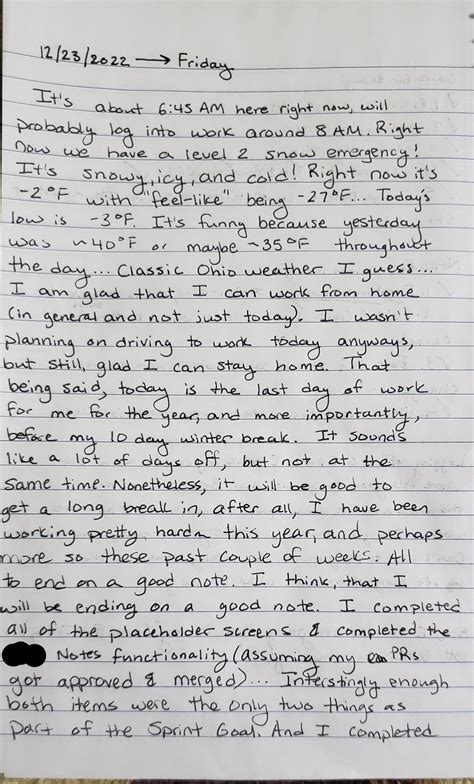 12/23/2022 → Friday
It's about 6:45 AM here right now, will
probably log into work around 8 AM. Right
now we have a level 2 snow emergency!
It's snowy, icy, and cold! Right now it's
-2°F with "feel-like" being -27°F... Today's
low is -3°F. It's funny because yesterday
was ~40°F or maybe ~35°F throughout
the day... Classic Ohio weather I guess...
I am glad that I can work from home
(in general and not just today). I wasn't
planning on driving to work today anyways,
but still, glad I can stay home. That
being said, today is the last day of work
for me for the year, and more importantly,
before my 10 day winter break. It sounds
like a lot of days off, but not at the
same time. Nonetheless, it will be good to
get a long break in, after all, I have been
working pretty hard this year, and perhaps
more so these past couple of weeks. All
to end on a good note. I think, that I
will be ending on a good note. I completed
all of the placeholder screens & completed the
Notes functionality (assuming my PRs
got approved & merged)... Interstingly enough
both items were the only two things as
part of the Sprint Goal. And I completed